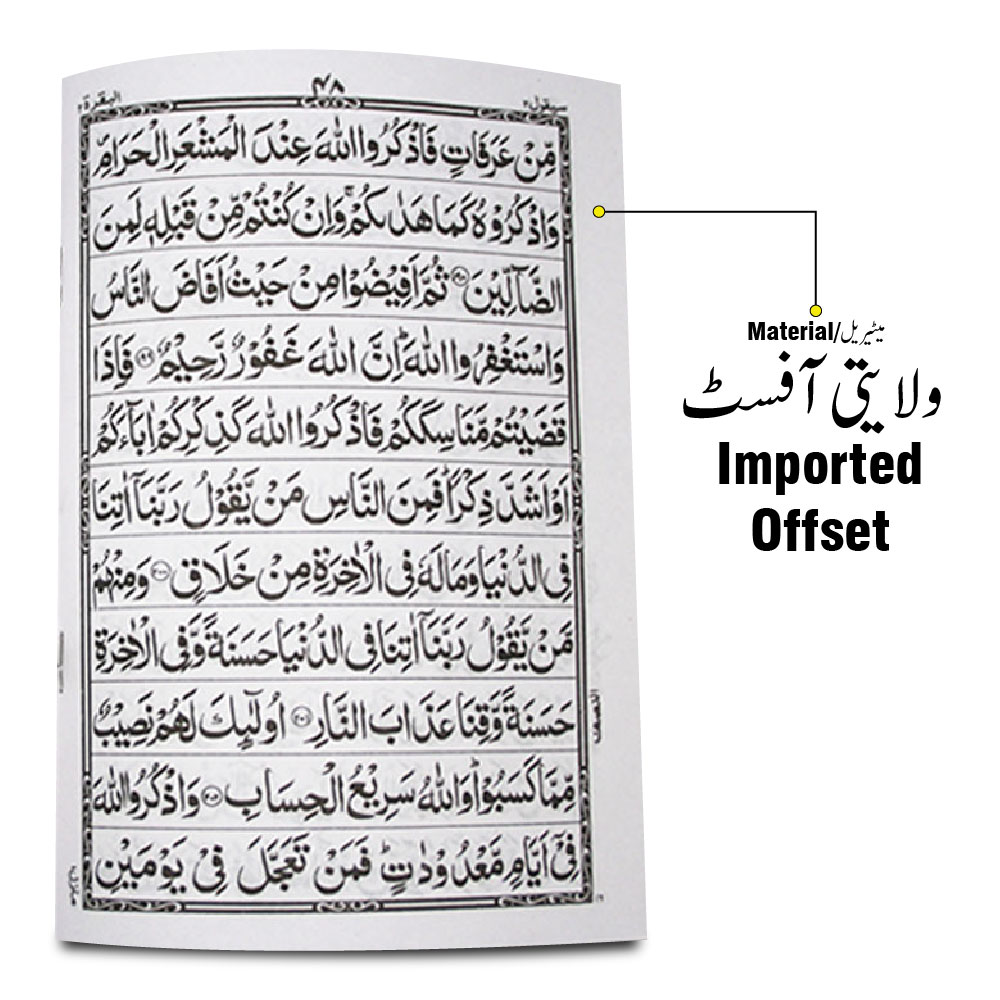 البقرة ٢
٤٨
سيقول ٢
مِّنْ عَرَفَاتٍ فَاذْكُرُوا اللّٰهَ عِنْدَ الْمَشْعَرِ الْحَرَامِ۪
وَاذْكُرُوْهُ كَمَا هَدٰىكُمْ ۚ وَاِنْ كُنْتُمْ مِّنْ قَبْلِهٖ لَمِنَ
الضَّآلِّيْنَ ۝۱۹۸ ثُمَّ اَفِيْضُوْا مِنْ حَيْثُ اَفَاضَ النَّاسُ
وَاسْتَغْفِرُوا اللّٰهَ ؕ اِنَّ اللّٰهَ غَفُوْرٌ رَّحِيْمٌ ۝۱۹۹ فَاِذَا
قَضَيْتُمْ مَّنَاسِكَكُمْ فَاذْكُرُوا اللّٰهَ كَذِكْرِكُمْ اٰبَآءَكُمْ
اَوْ اَشَدَّ ذِكْرًا ؕ فَمِنَ النَّاسِ مَنْ يَّقُوْلُ رَبَّنَآ اٰتِنَا
فِى الدُّنْيَا وَمَا لَهٗ فِى الْاٰخِرَةِ مِنْ خَلَاقٍ ۝۲۰۰ وَمِنْهُمْ
مَّنْ يَّقُوْلُ رَبَّنَآ اٰتِنَا فِى الدُّنْيَا حَسَنَةً وَّفِى الْاٰخِرَةِ
حَسَنَةً وَّقِنَا عَذَابَ النَّارِ ۝۲۰۱ اُولٰٓئِكَ لَهُمْ نَصِيْبٌ
مِّمَّا كَسَبُوْا ؕ وَاللّٰهُ سَرِيْعُ الْحِسَابِ ۝۲۰۲ وَاذْكُرُوا اللّٰهَ
فِىْٓ اَيَّامٍ مَّعْدُوْدٰتٍ ؕ فَمَنْ تَعَجَّلَ فِىْ يَوْمَيْنِ
النصف
Material/میٹیریل
ولایتی آفسٹ
Imported
Offset